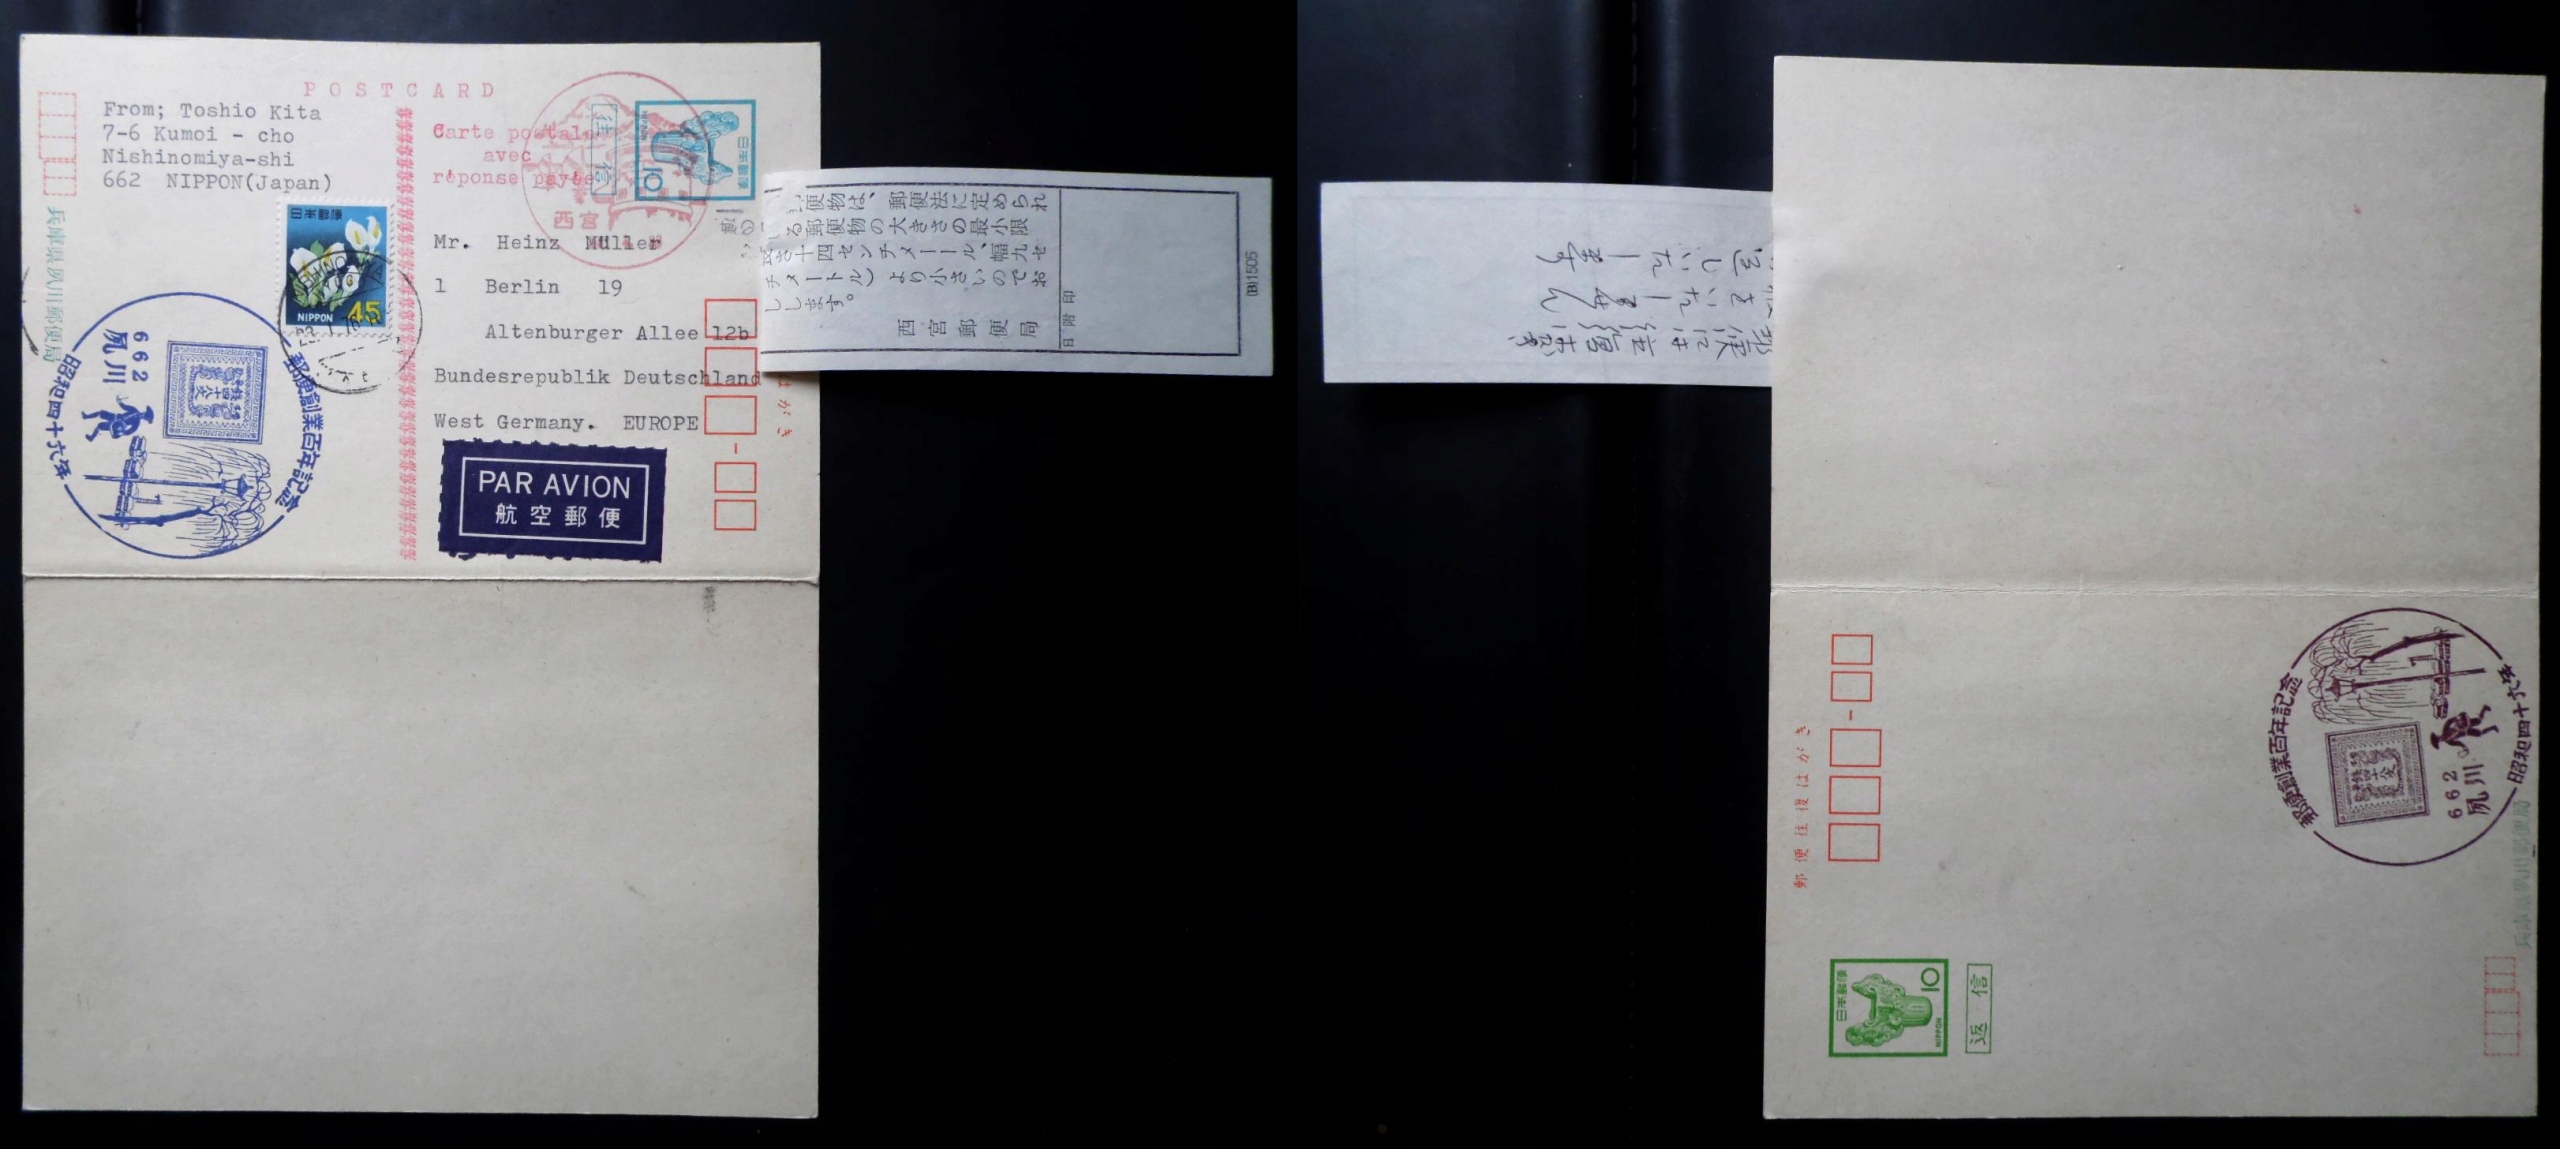 POSTCARD
From; Toshio Kita
7-6 Kumoi - cho
Nishinomiya-shi
662 NIPPON(Japan)
Carte postale
avec
réponse payée
往信
日本郵便
NIPPON
10
西宮
Mr. Heinz Müller
1 Berlin 19
Altenburger Allee 12b
Bundesrepublik Deutschland
West Germany. EUROPE
PAR AVION
航空郵便
日本郵便
NIPPON
45
兵庫県夙川郵便局
郵便創業百年記念
662
夙川
昭和四十六年
はがき
便物は、郵便法に定められ
る郵便物の大きさの最小限
さ十四センチメートル、幅九セ
チメートル）より小さいのでお
しします。
西宮郵便局
日附印
(B)1505
郵便創業百年記念
662
夙川
昭和四十六年
郵便往復はがき
日本郵便
10
NIPPON
返信